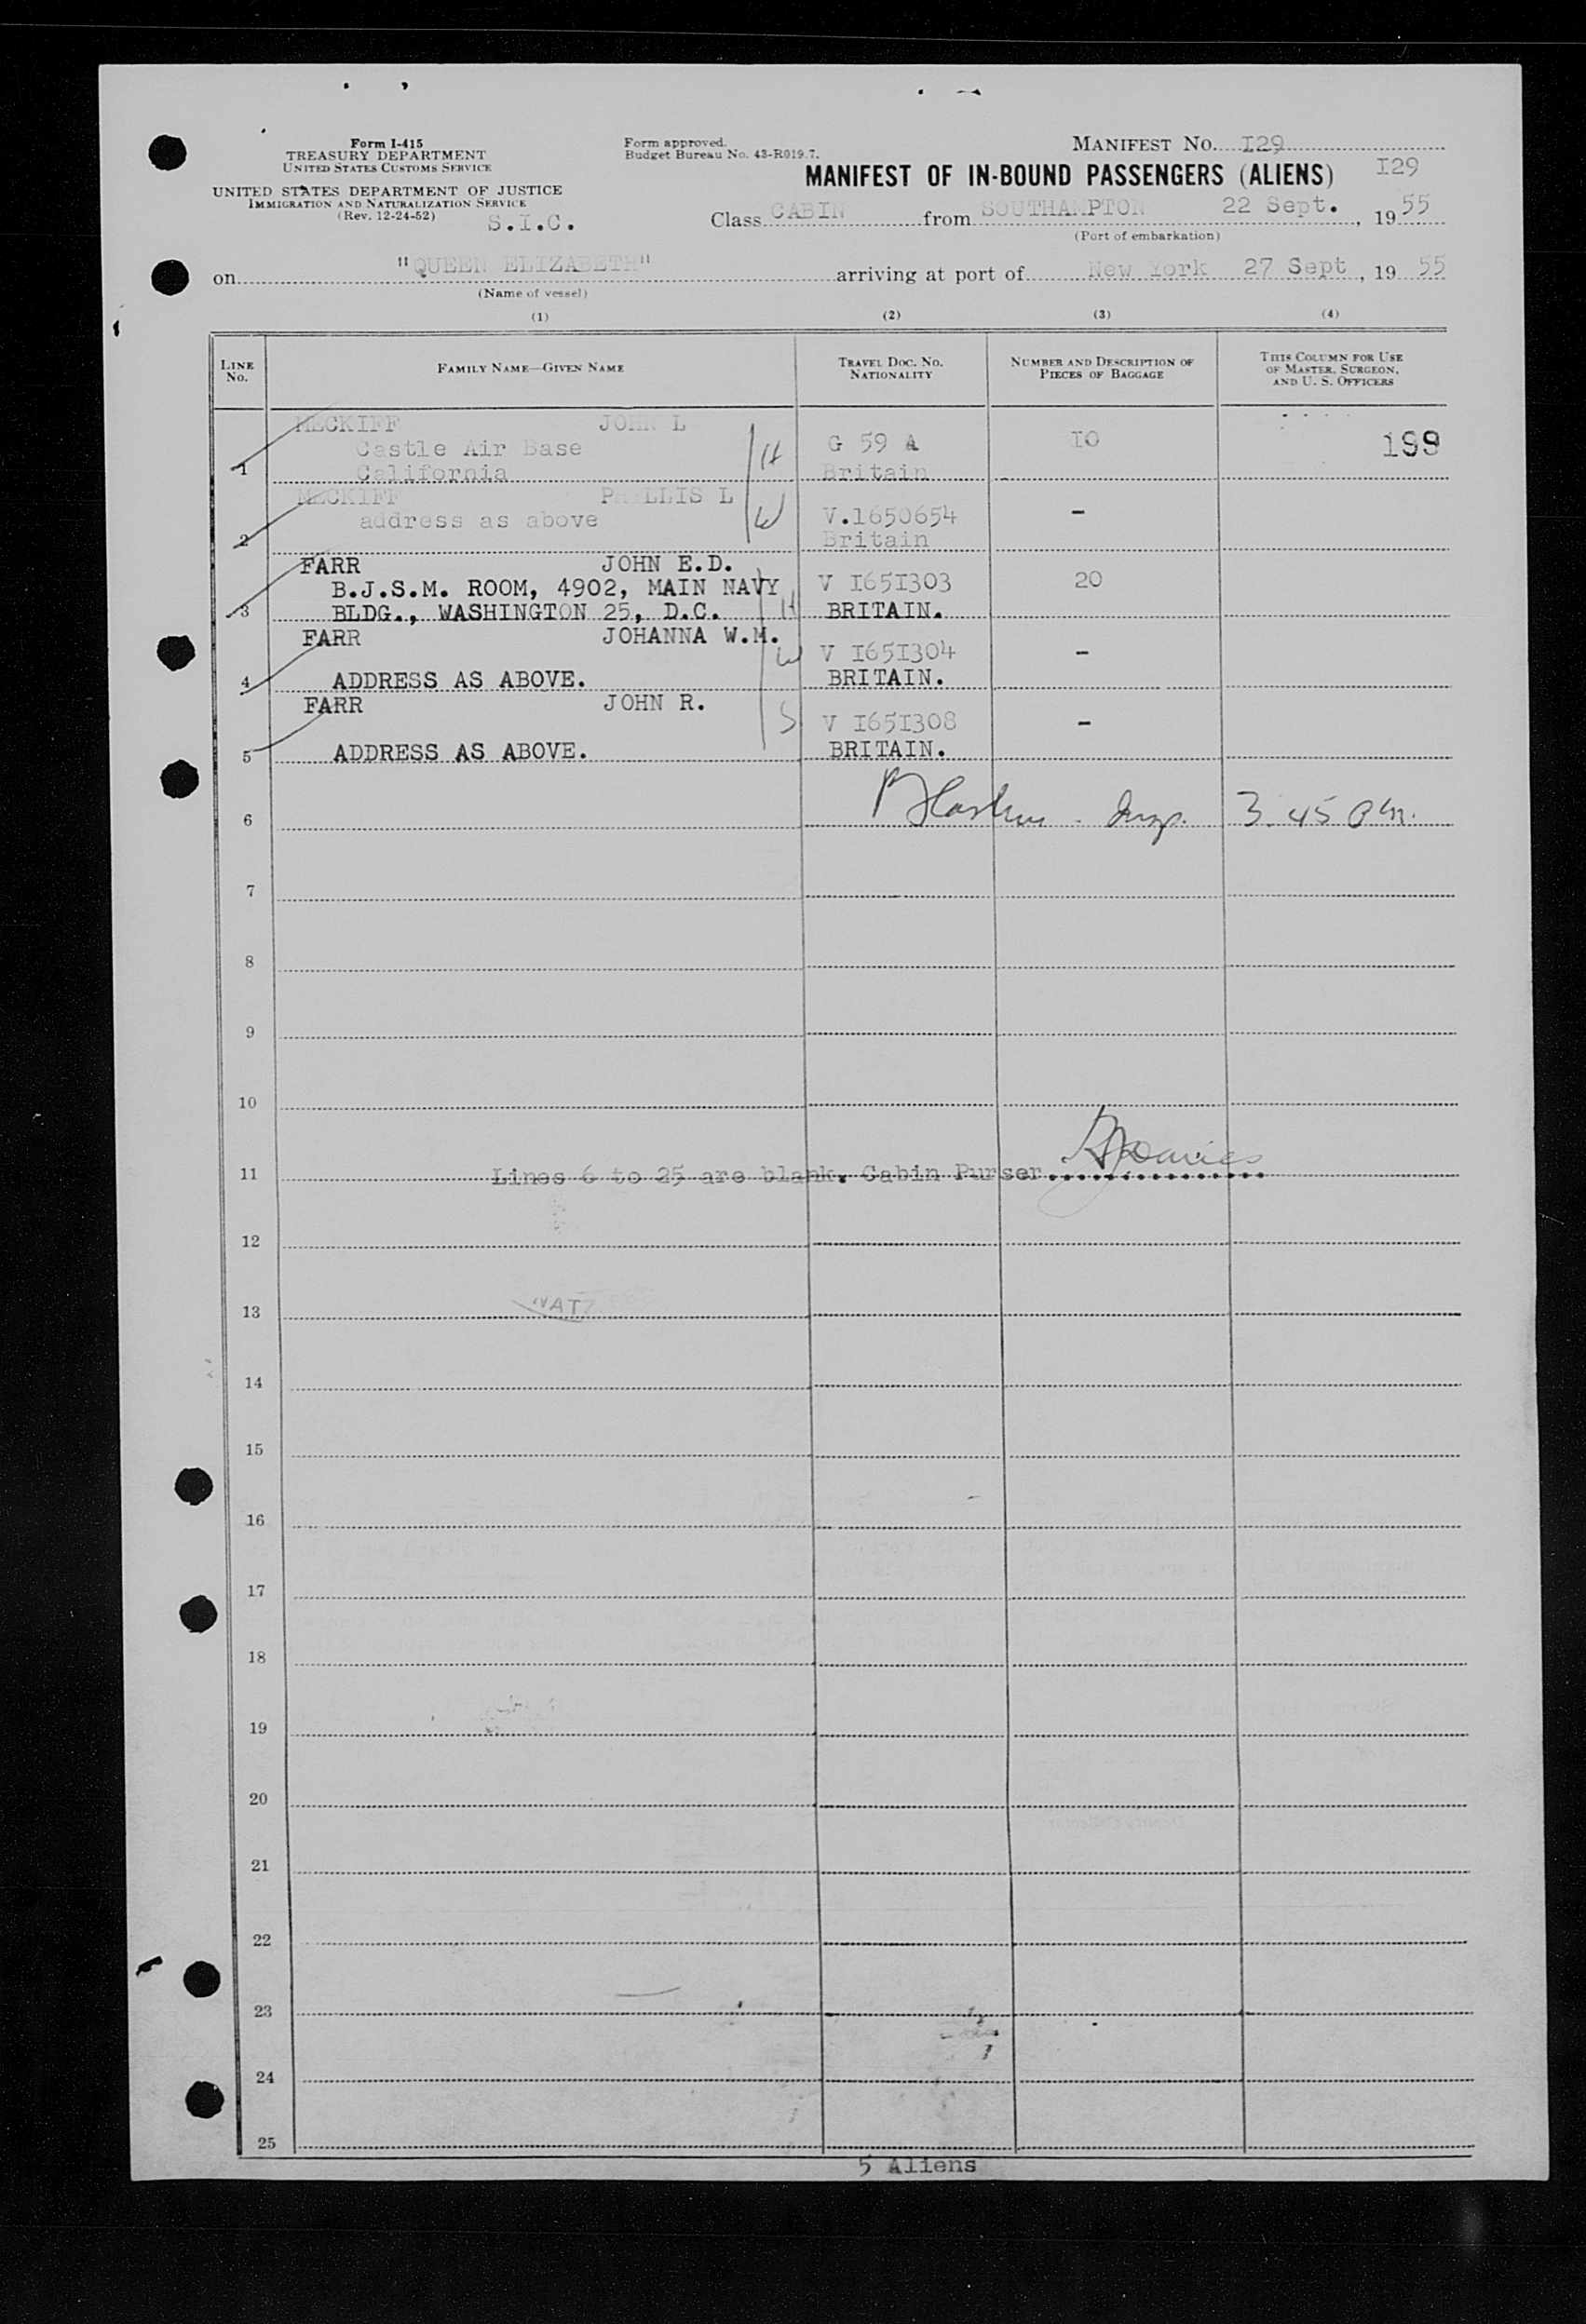 Form I-415
TREASURY DEPARTMENT
UNITED STATES CUSTOMS SERVICE
UNITED STATES DEPARTMENT OF JUSTICE
IMMIGRATION AND NATURALIZATION SERVICE
(Rev. 12-24-52)
S.I.C.
Form approved.
Budget Bureau No. 43-R019.7.
MANIFEST NO. I29
MANIFEST OF IN-BOUND PASSENGERS (ALIENS) I29
Class CABIN from SOUTHAMPTON 22 Sept., 19 55
(Port of embarkation)
on "QUEEN ELIZABETH" arriving at port of New York 27 Sept, 19 55
(Name of vessel)
(1) (2) (3) (4)
LINE NO.
FAMILY NAME—GIVEN NAME
TRAVEL DOC. NO. NATIONALITY
NUMBER AND DESCRIPTION OF PIECES OF BAGGAGE
THIS COLUMN FOR USE OF MASTER, SURGEON, AND U. S. OFFICERS
MECKIFF JOHN L
Castle Air Base H G 59 A IO 199
1 California Britain
MECKIFF PHYLLIS L
address as above W V.1650654 -
2 Britain
FARR JOHN E.D.
B.J.S.M. ROOM, 4902, MAIN NAVY V I65I303 20
3 BLDG., WASHINGTON 25, D.C. H BRITAIN.
FARR JOHANNA W.M.
W V I65I304 -
4 ADDRESS AS ABOVE. BRITAIN.
FARR JOHN R.
S V I65I308 -
5 ADDRESS AS ABOVE. BRITAIN.
6 Insp. 3.45 PM.
7
8
9
10
11 Lines 6 to 25 are blank. Cabin Purser Davies
12
13
14
15
16
17
18
19
20
21
22
23
24
25
5 Aliens